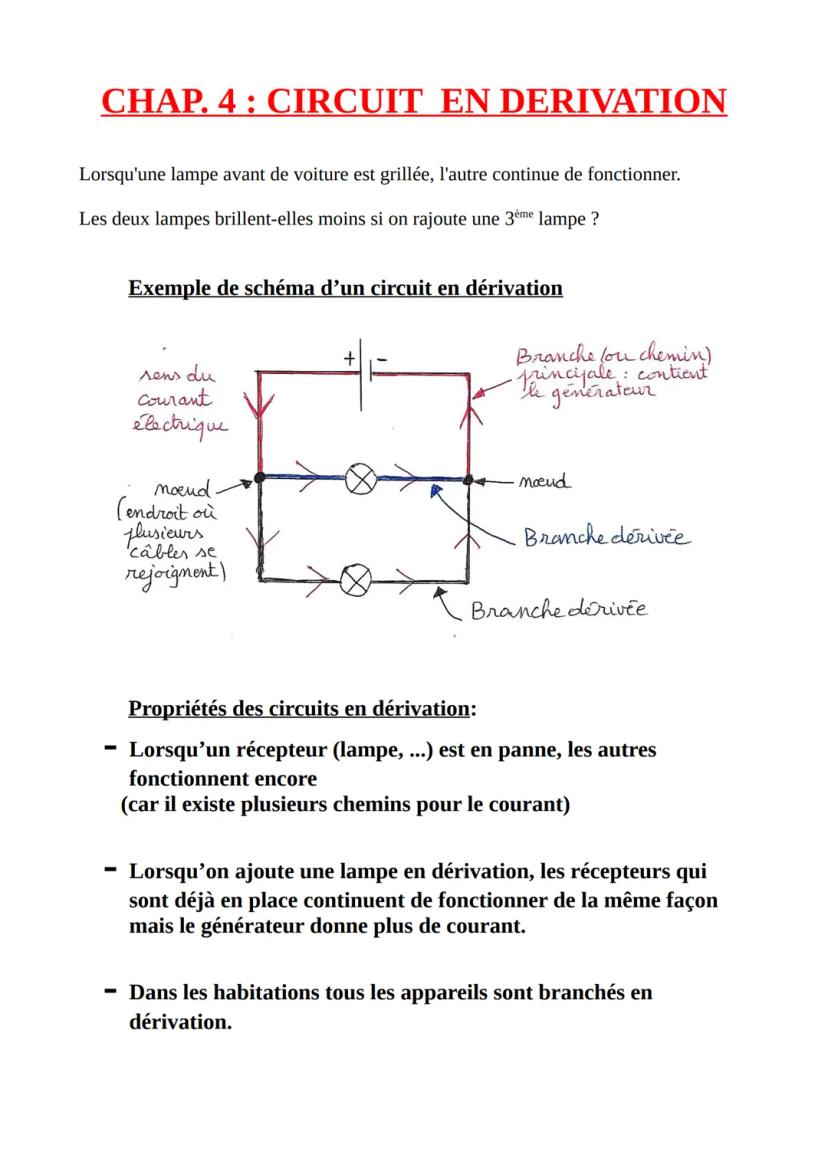 CHAP. 4 : CIRCUIT EN DERIVATION
Lorsqu'une lampe avant de voiture est grillée, l'autre continue de fonctionner.
Les deux lampes brillent-elles moins si on rajoute une 3ème lampe ?
Exemple de schéma d’un circuit en dérivation
+ -
Branche (ou chemin)
principale : contient
le générateur
sens du
courant
électrique
nœud
(endroit où
plusieurs
câbles se
rejoignent)
nœud
Branche dérivée
Branche dérivée
Propriétés des circuits en dérivation:
- Lorsqu’un récepteur (lampe, ...) est en panne, les autres
fonctionnent encore
(car il existe plusieurs chemins pour le courant)
- Lorsqu’on ajoute une lampe en dérivation, les récepteurs qui
sont déjà en place continuent de fonctionner de la même façon
mais le générateur donne plus de courant.
- Dans les habitations tous les appareils sont branchés en
dérivation.